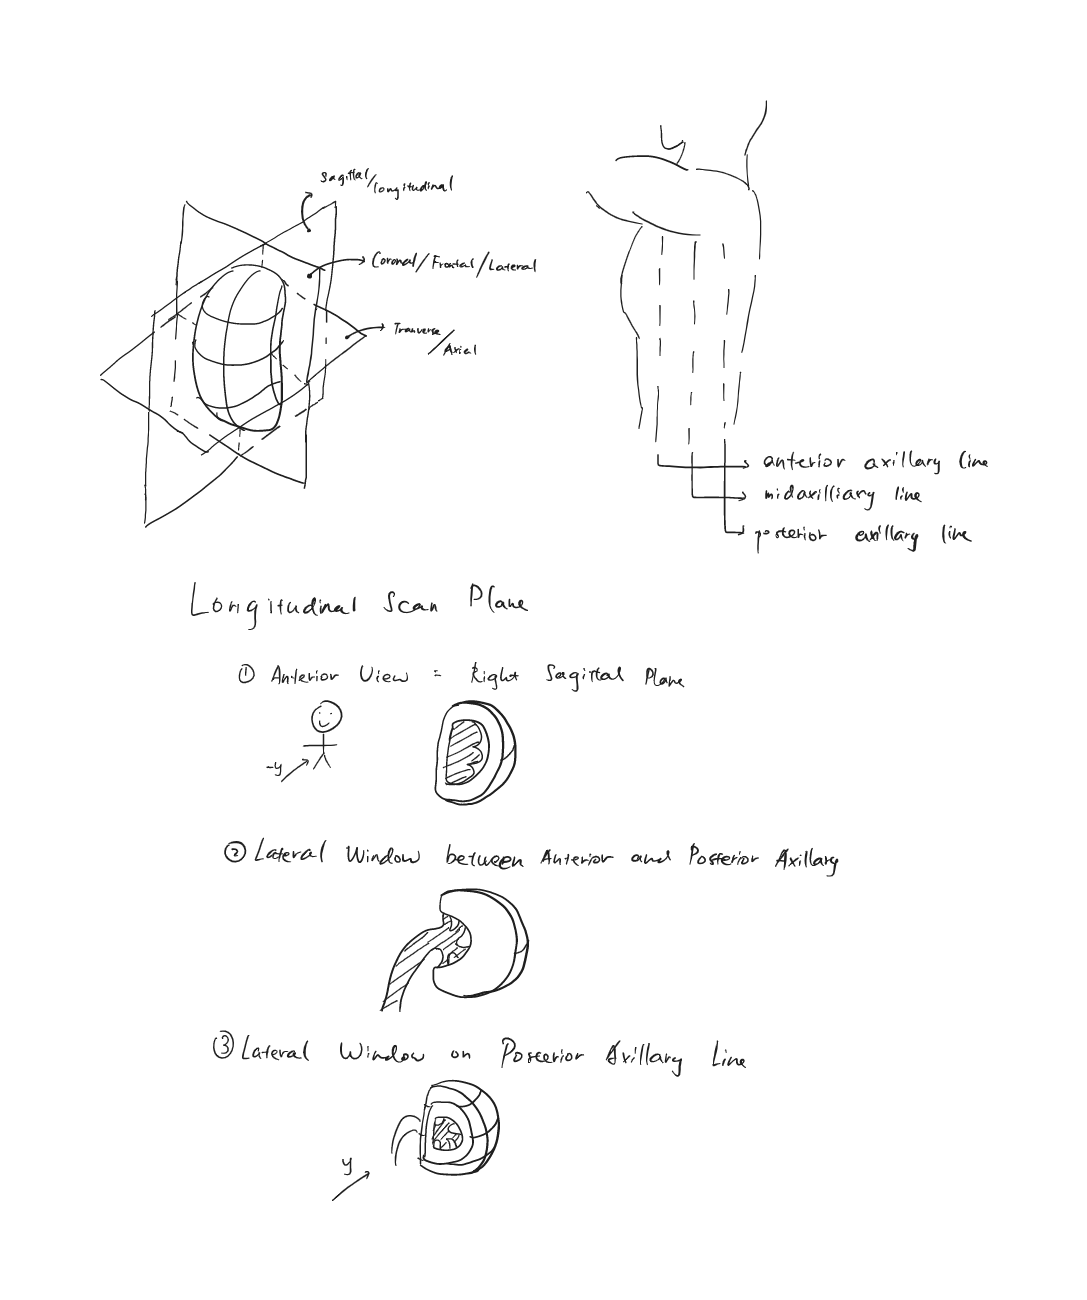 Sagittal/longitudinal
Coronal/Frontal/Lateral
Tranverse/Axial
anterior axillary line
midaxilliary line
posterior axillary line
Longitudinal Scan Plane
① Anterior View = Right Sagittal Plane
-y
② Lateral Window between Anterior and Posterior Axillary
③ Lateral Window on Posterior Axillary Line
y